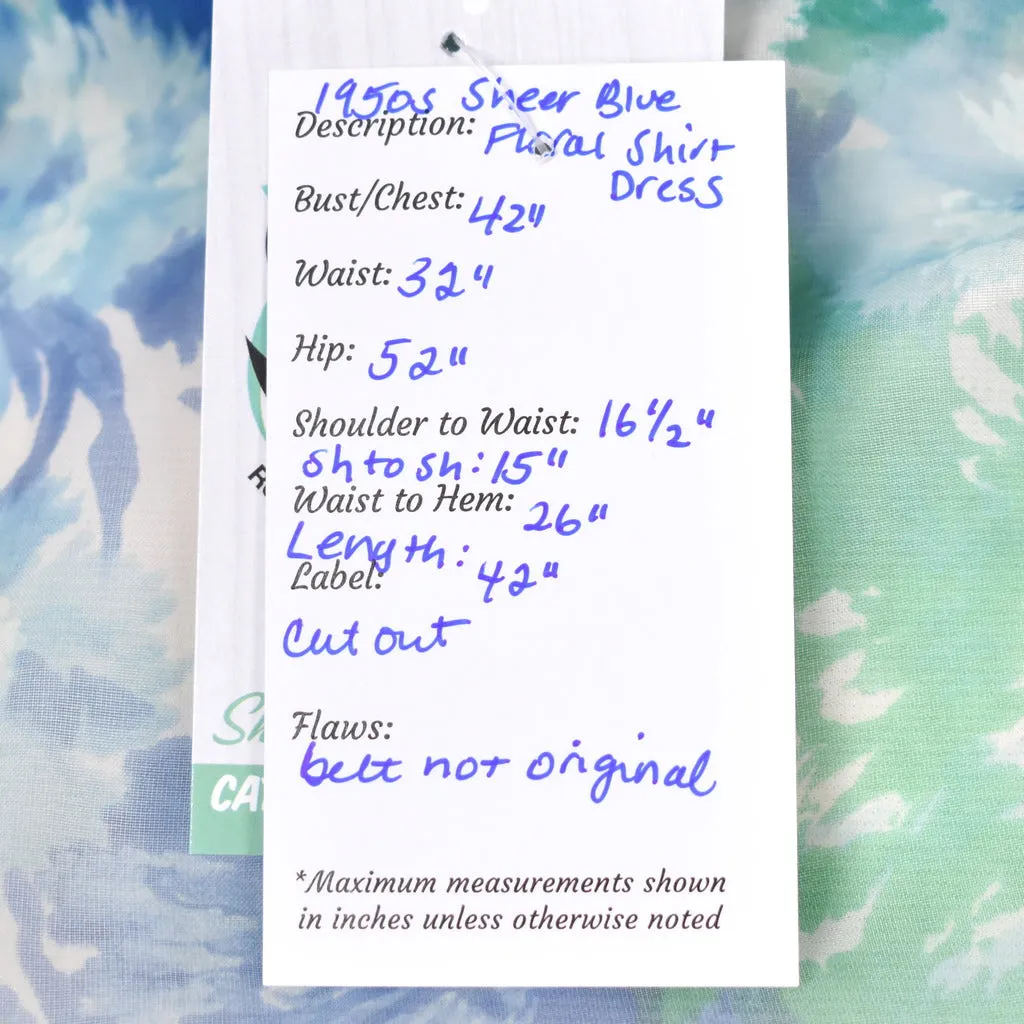 1950s Sheer Blue
Description: Floral Shirt
Dress
Bust/Chest: 42"
Waist: 32"
Hip: 52"
Shoulder to Waist: 16 1/2"
sh to sh: 15"
Waist to Hem: 26"
Length: 42"
Label:
Cut out
Flaws:
belt not original
*Maximum measurements shown
in inches unless otherwise noted